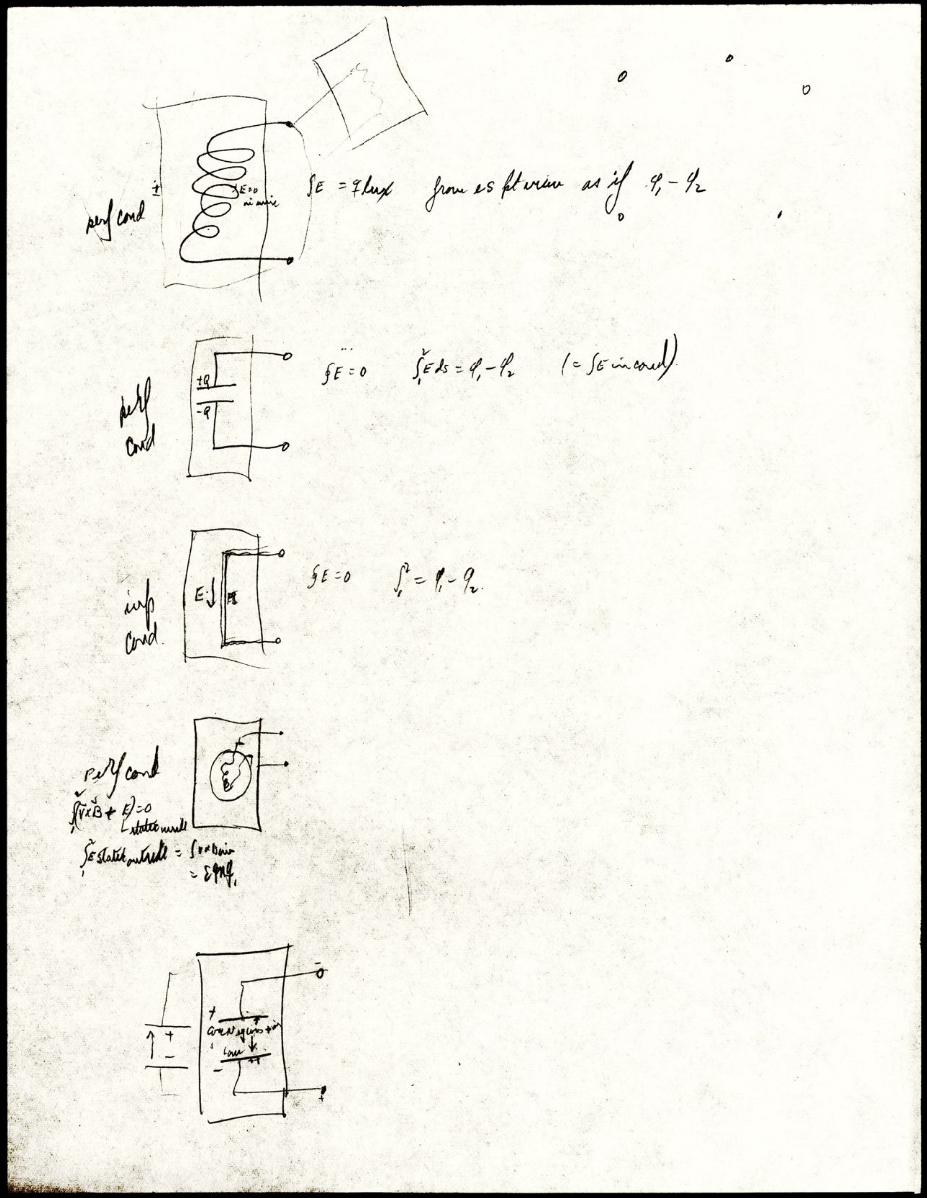 ±
perf cond
E=0
in wire
∮E = flux from es pt view as if φ₁ - φ₂
perf
cond
+Q
-Q
∮E = 0 ∫₁² E ds = φ₁ - φ₂ (= ∫E in cond)
imp
cond.
E ↓
∮E = 0 ∫₁² = φ₁ - φ₂
perf cond
∫(v×B + E) = 0
∫₁² E static outside =
+
-
+
-
-
+